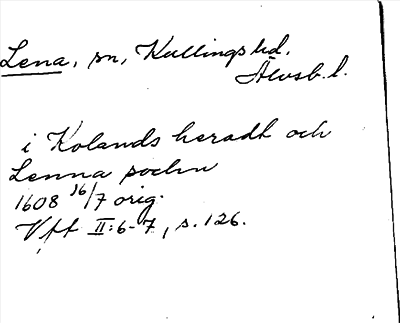 Lena, sn, Kullings hd.
Älvsb. l.
i Kolands heradt och
Lenna sochn
1608 16/7 orig.
Vff II:6-7, s. 126.